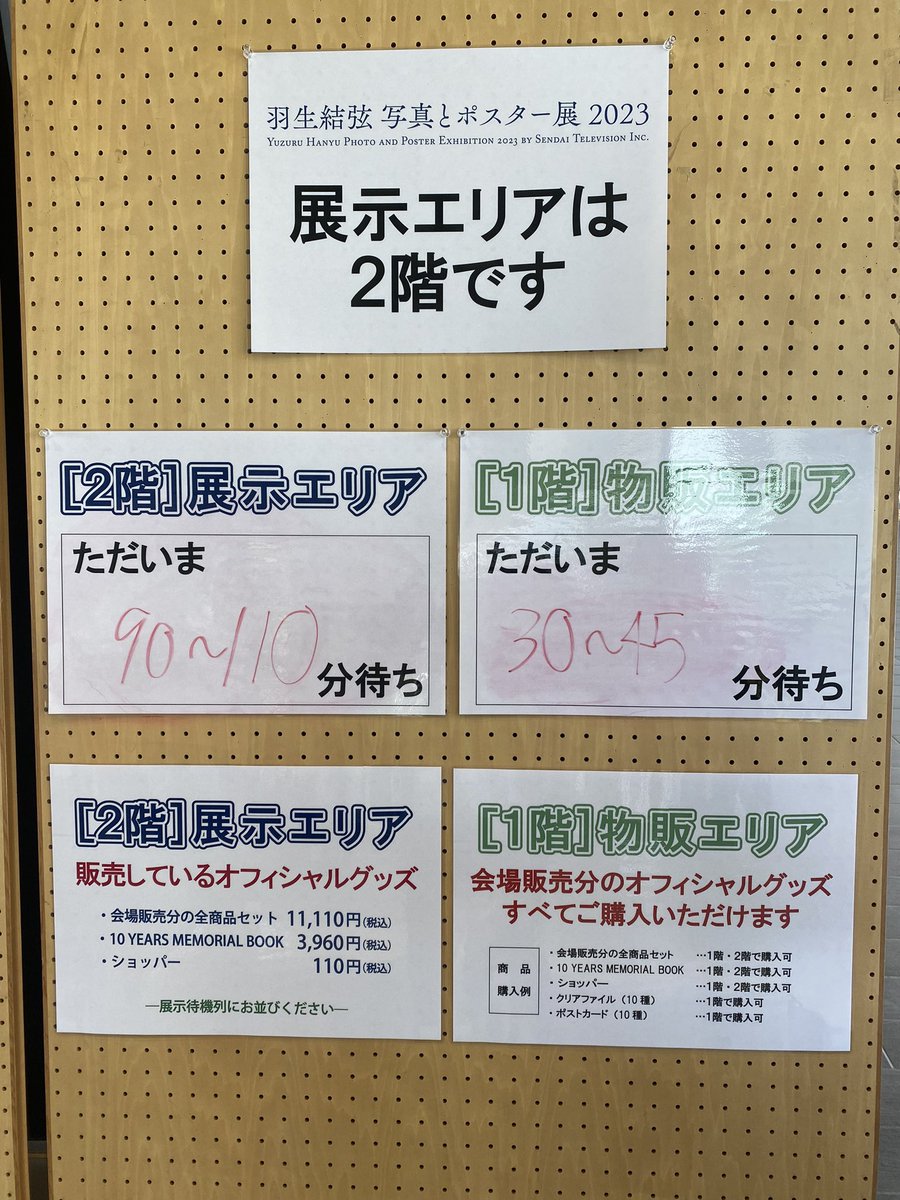 羽生結弦 写真とポスター展 2023
YUZURU HANYU PHOTO AND POSTER EXHIBITION 2023 BY SENDAI TELEVISION INC.
展示エリアは
2階です
[2階]展示エリア
ただいま
90~110
分待ち
[1階]物販エリア
ただいま
30~45
分待ち
[2階]展示エリア
販売しているオフィシャルグッズ
・会場販売分の全商品セット 11,110円(税込)
・10 YEARS MEMORIAL BOOK 3,960円(税込)
・ショッパー 110円(税込)
―展示待機列にお並びください―
[1階]物販エリア
会場販売分のオフィシャルグッズ
すべてご購入いただけます
商品
購入例
・会場販売分の全商品セット …1階・2階で購入可
・10 YEARS MEMORIAL BOOK …1階・2階で購入可
・ショッパー …1階・2階で購入可
・クリアファイル(10種) …1階で購入可
・ポストカード(10種) …1階で購入可